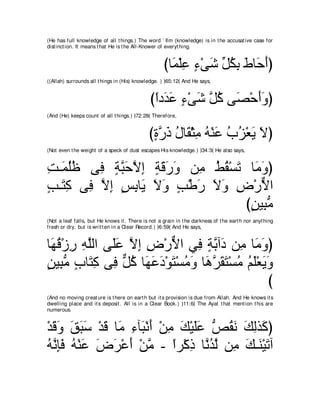 (He has full knowledge of all things.) The word `Ilm (knowledge) is in the accusative case for
distinction. It means that He is the All-Knower of everything.
(أَحَاطَ بِكُلِّ شَىْءٍ عِلْمَا)
((Allah) surrounds all things in (His) knowledge. ) )65:12( And He says,
(وَأَحْصَى كُلَّ شَىْءٍ عَدَداً)
(And (He) keeps count of all things.) (72:28) Therefore,
(لاَ يَعْزُبُ عَنْهُ مِثْقَالُ ذَرَّةٍ)
(Not even the weight of a speck of dust escapes His knowledge.) )34:3( He also says,
(وَمَا تَسْقُطُ مِن وَرَقَةٍ إِلاَّ يَعْلَمُهَا وَلاَ حَبَّةٍ فِى ظُلُمَـتِ
الاٌّرْضِ وَلاَ رَطْبٍ وَلاَ يَابِسٍ إِلاَّ فِى كِتَـبٍ
مُّبِينٍ)
(Not a leaf falls, but He knows it. There is not a grain in the darkness of the earth nor anything
fresh or dry, but is written in a Clear Record.) (6:59) And He says,
(وَمَا مِن دَآبَّةٍ فِي الاٌّرْضِ إِلاَّ عَلَى اللَّهِ رِزْقُهَا
وَيَعْلَمُ مُسْتَقَرَّهَا وَمُسْتَوْدَعَهَا كُلٌّ فِى كِتَابٍ مُّبِينٍ
)
(And no moving creature is there on earth but its provision is due from Allah. And He knows its
dwelling place and its deposit. All is in a Clear Book.) )11:6( The Ayat that mention this are
numerous.
(كَذَلِكَ نَقُصُّ عَلَيْكَ مِنْ أَنْبَآءِ مَا قَدْ سَبَقَ وَقَدْ
آتَيْنَـكَ مِن لَّدُنَّا ذِكْراً - مَّنْ أَعْرَضَ عَنْهُ فَإِنَّهُ